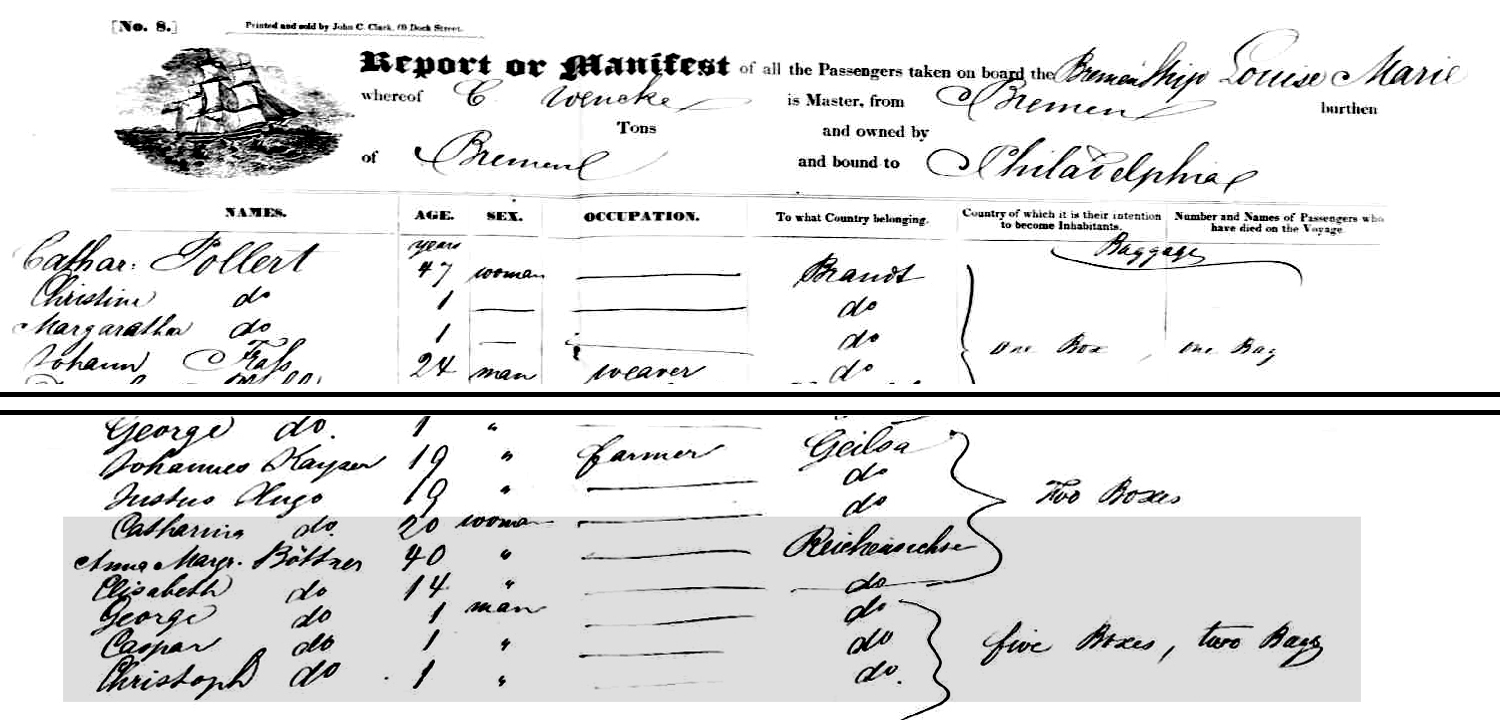 [No. 8.]
Printed and sold by John C. Clark, 60 Dock Street.
Report or Manifest of all the Passengers taken on board the Bremen Ship Louise Marie
whereof C. Wencke is Master, from Bremen burthen
Tons and owned by
of Bremen and bound to Philadelphia
NAMES. AGE. SEX. OCCUPATION. To what Country belonging. Country of which it is their intention to become Inhabitants. Number and Names of Passengers who have died on the Voyage
years Baggage
Cathar: Pollert 47 woman Brandt
Christine do 1 do
Margaratha do 1 do
Johann Fass 24 man weaver do One Box, one Bag
George do. 1 "
Johannes Kayser 19 " farmer Geilsa
Justus Hugo 19 " do Two Boxes
Catharina do. 20 woman do
Anna Margr. Böttner 40 " Reichensachse
Elisabeth do 14 " do
George do 1 man do
Caspar do 1 " do five Boxes, two Bags
Christoph do 1 " do.